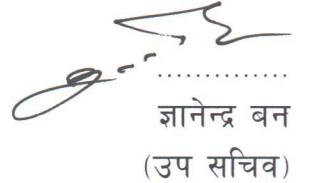 ..............
ज्ञानेन्द्र बन
(उप सचिव)